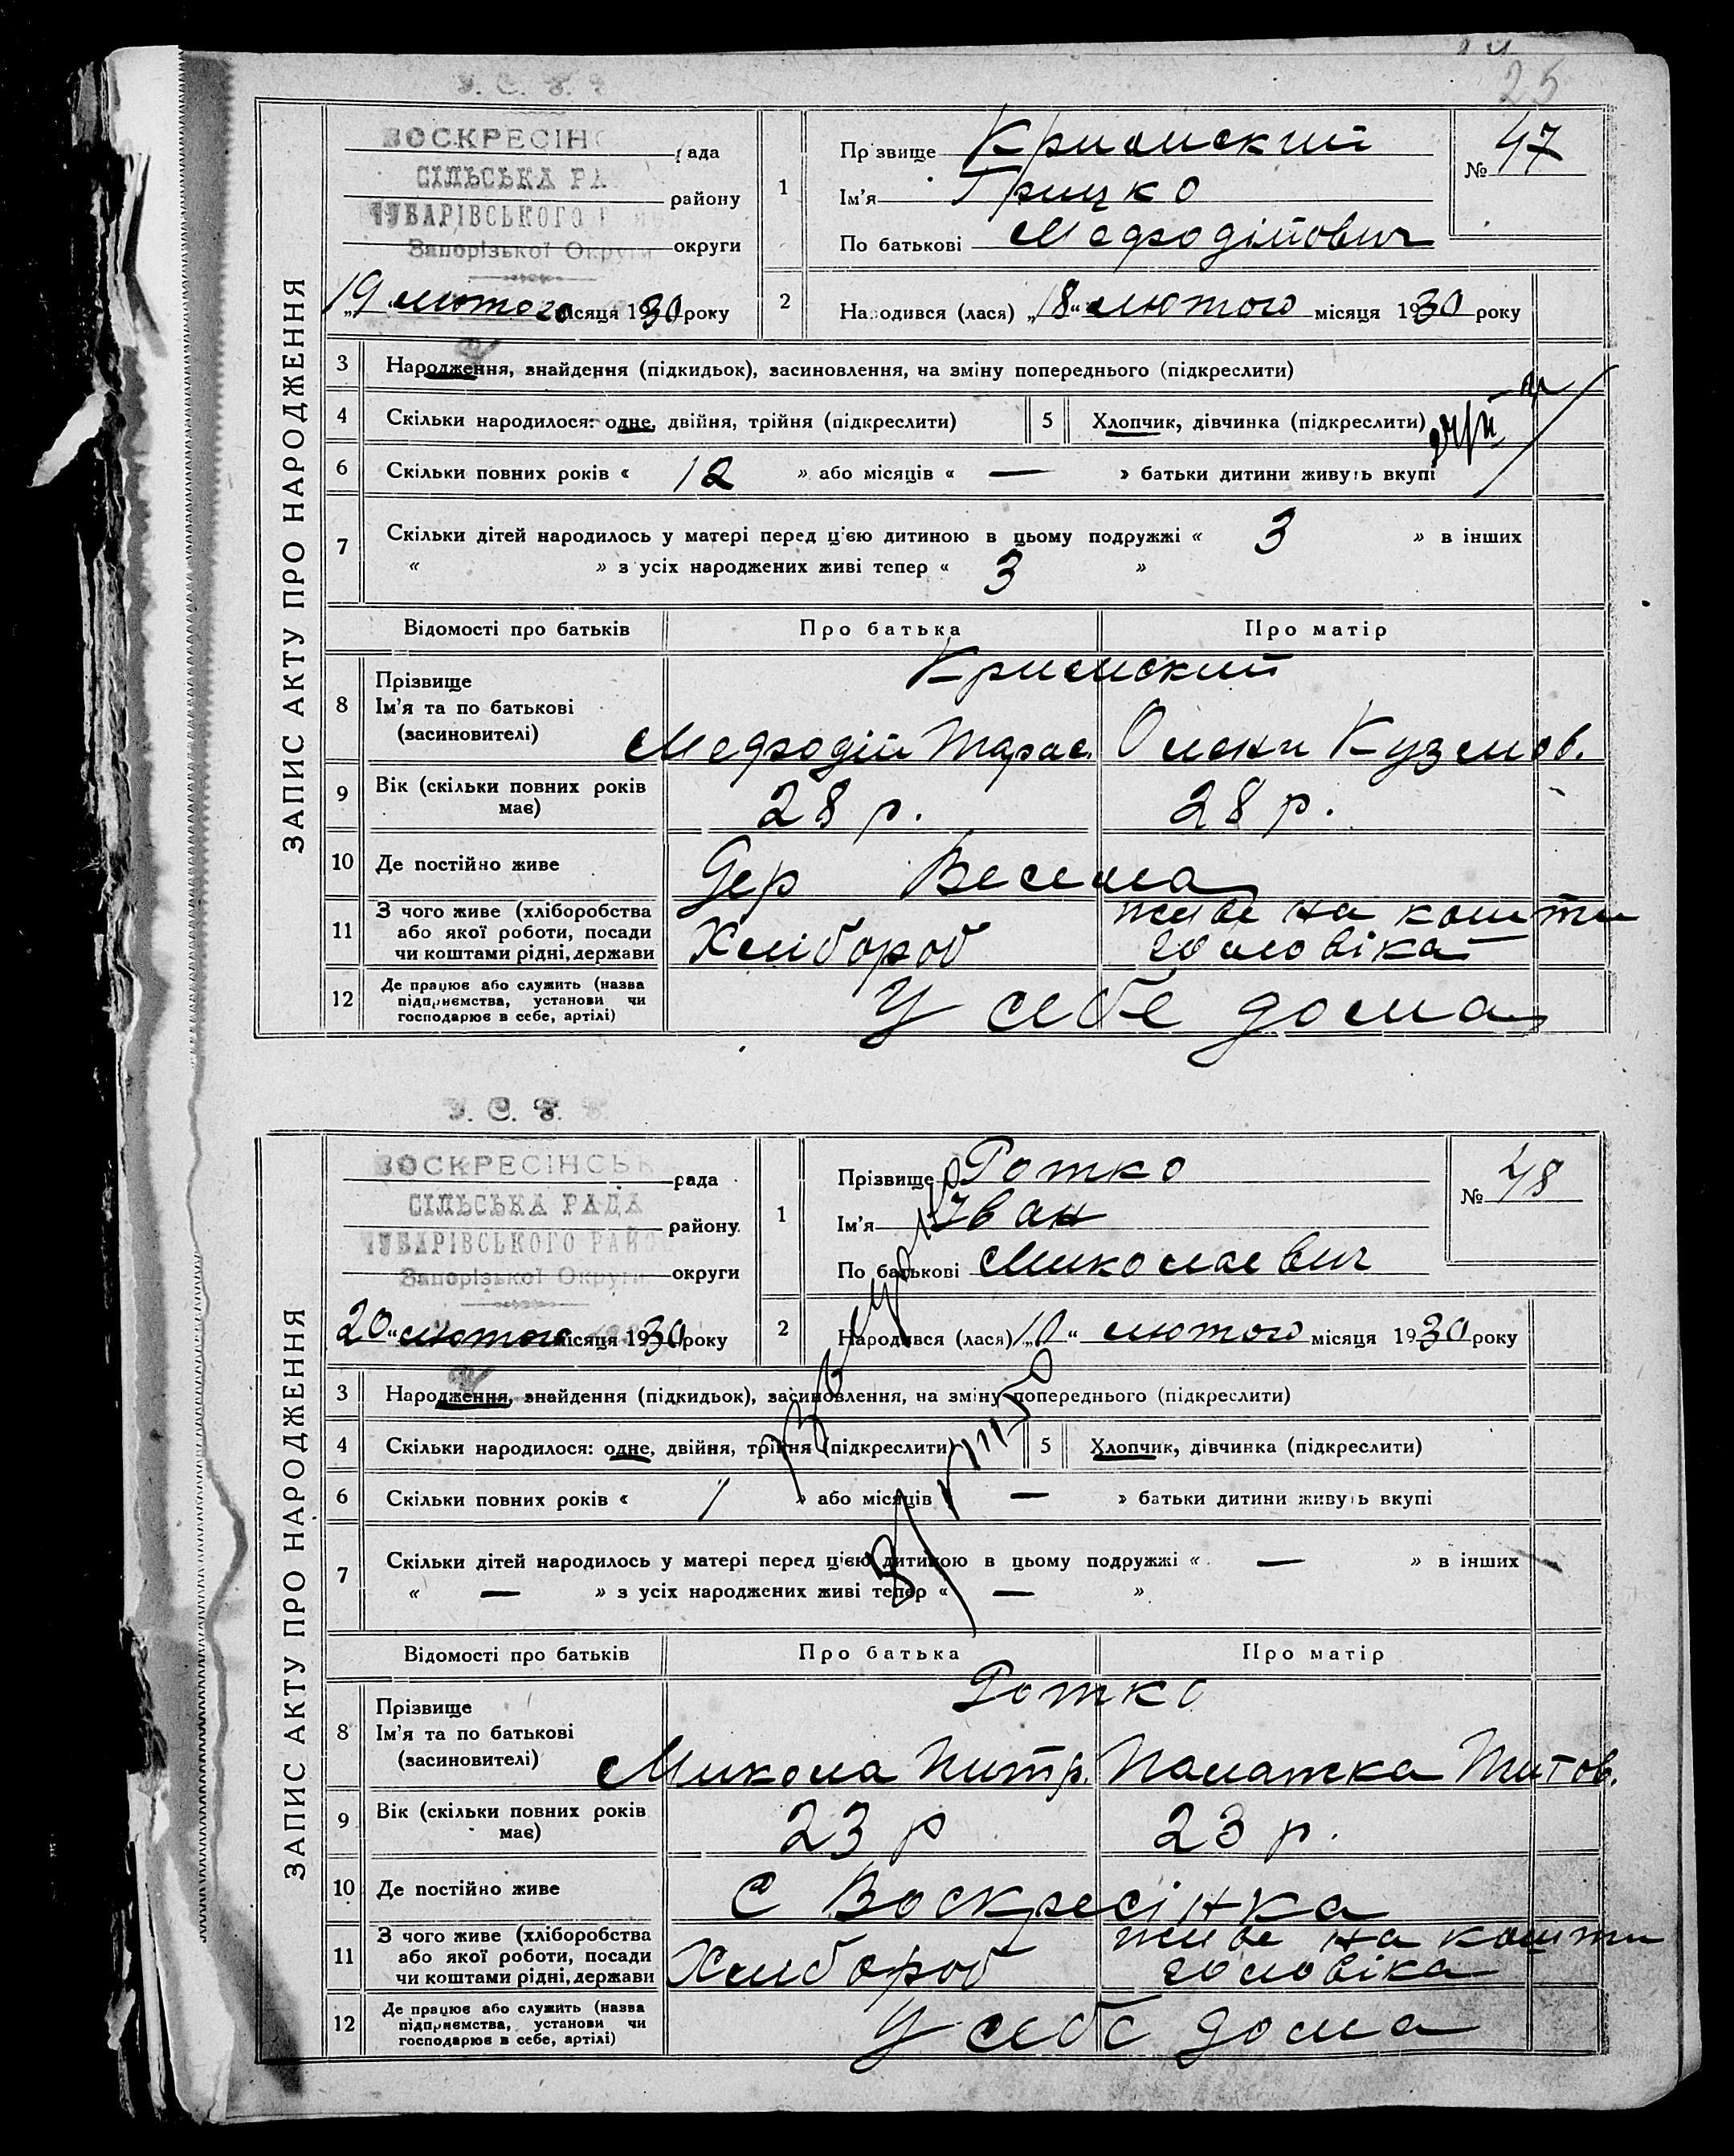 25
У. С. Р. Р.
ВОСКРЕСІНС
рада
СІЛЬСЬКА РА
району
ЧУБАРІВСЬКОГО
Запорізької Округи
округи
„19“ лютого місяця 1930 року
1
Прізвище Кримский
Ім'я Грицко
По батькові Мефодійович
№ 47
2
Народився (лася) „18“ лютого місяця 1930 року
ЗАПИС АКТУ ПРО НАРОДЖЕННЯ
3 Народження, знайдення (підкидьок), засиновлення, на зміну попереднього (підкреслити)
4 Скільки народилося: одне, двійня, трійня (підкреслити)
5 Хлопчик, дівчинка (підкреслити)
6 Скільки повних років « 12 » або місяців « — » батьки дитини живуть вкупі
7 Скільки дітей народилось у матері перед ц'єю дитиною в цьому подружжі « 3 » в інших
« » з усіх народжених живі тепер « 3 »
Відомості про батьків Про батька Про матір
8
Прізвище
Ім'я та по батькові
(засиновителі)
Кримский
Мефодій Тарас. Олени Кузмов.
9
Вік (скільки повних років
має)
28 р. 28 р.
10 Де постійно живе Дер Весела
11
З чого живе (хліборобства
або якої роботи, посади
чи коштами рідні, держави
Хлибороб
живе на кошти
чоловіка
12
Де працює або служить (назва
підприємства, установи чи
господарює в себе, артілі)
У себе дома
У. С. Р. Р.
ВОСКРЕСІНСЬК
рада
СІЛЬСЬКА РАДА
району
ЧУБАРІВСЬКОГО РАЙО
Запорізької Округи
округи
„20“ лютого місяця 1930 року
1
Прізвище Ротко
Ім'я Іван
По батькові Миколаевич
№ 48
2
Народився (лася) „10“ лютого місяця 1930 року
ЗАПИС АКТУ ПРО НАРОДЖЕННЯ
3 Народження, знайдення (підкидьок), засиновлення, на зміну попереднього (підкреслити)
4 Скільки народилося: одне, двійня, трійня (підкреслити)
5 Хлопчик, дівчинка (підкреслити)
6 Скільки повних років « 1 » або місяців « — » батьки дитини живуть вкупі
7 Скільки дітей народилось у матері перед ц'єю дитиною в цьому подружжі « — » в інших
« — » з усіх народжених живі тепер « — »
Відомості про батьків Про батька Про матір
8
Прізвище
Ім'я та по батькові
(засиновителі)
Ротко
Микола Питр. Палажка Титов.
9
Вік (скільки повних років
має)
23 р 23 р.
10 Де постійно живе С Воскресінка
11
З чого живе (хліборобства
або якої роботи, посади
чи коштами рідні, держави
Хлибороб
живе на кошти
чоловіка
12
Де працює або служить (назва
підприємства, установи чи
господарює в себе, артілі)
У себе дома